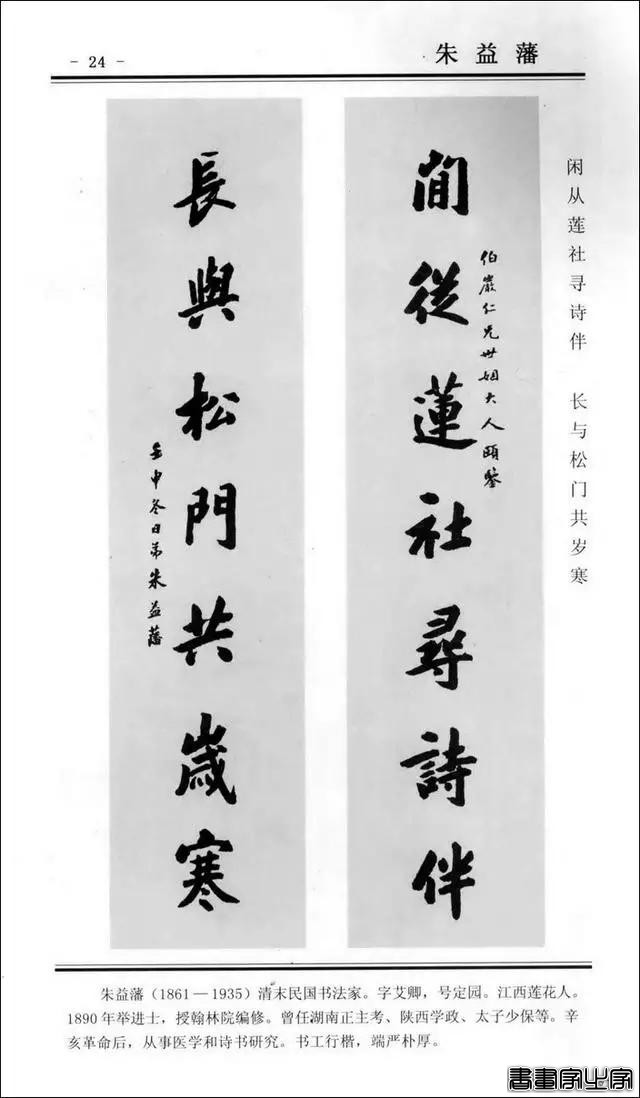 - 24 -
朱益藩
闲从莲社寻诗伴 长与松门共岁寒
閒從蓮社尋詩伴
伯嚴仁兄世姻大人頤鑒
長與松門共歲寒
壬申冬日弟朱益藩
朱益藩（1861—1935）清末民国书法家。字艾卿，号定园。江西莲花人。
1890年举进士，授翰林院编修。曾任湖南正主考、陕西学政、太子少保等。辛
亥革命后，从事医学和诗书研究。书工行楷，端严朴厚。
書畫字业字